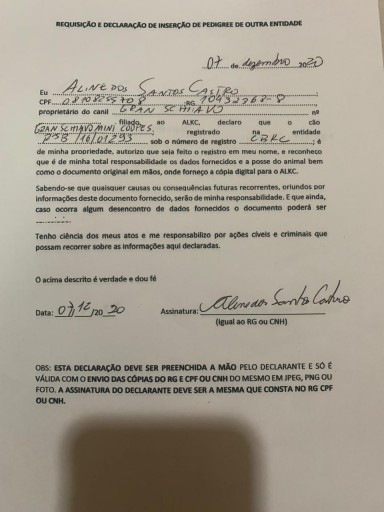 REQUISIÇÃO E DECLARAÇÃO DE INSERÇÃO DE PEDIGREE DE OUTRA ENTIDADE
07 de dezembro 2020
Eu ALINE DOS SANTOS CASTRO
CPF RG
proprietário do canil GRAN SCHIAVO na
filiado, ao ALKC, declaro que o cão
GRAN SCHIAVO MINI registrado na entidade
sob o número de registro CBKC ; é
de minha propriedade, autorizo que seja feito o registro em meu nome, e reconheço
que é de minha total responsabilidade os dados fornecidos e a posse do animal bem
como o documento original em mãos, onde forneço a cópia digital para o ALKC.
Sabendo-se que quaisquer causas ou consequências futuras recorrentes, oriundos por
informações deste documento fornecido, serão de minha responsabilidade. E que ainda,
caso ocorra algum desencontro de dados fornecidos o documento poderá ser
Tenho ciência dos meus atos e me responsabilizo por ações cíveis e criminais que
possam recorrer sobre as informações aqui declaradas.
O acima descrito é verdade e dou fé
Data: 07/12/20 20 Assinatura: Aline dos Santos Castro
(igual ao RG ou CNH)
OBS: ESTA DECLARAÇÃO DEVE SER PREENCHIDA A MÃO PELO DECLARANTE E SÓ É
VÁLIDA COM O ENVIO DAS CÓPIAS DO RG E CPF OU CNH DO MESMO EM JPEG, PNG OU
FOTO. A ASSINATURA DO DECLARANTE DEVE SER A MESMA QUE CONSTA NO RG CPF
OU CNH.